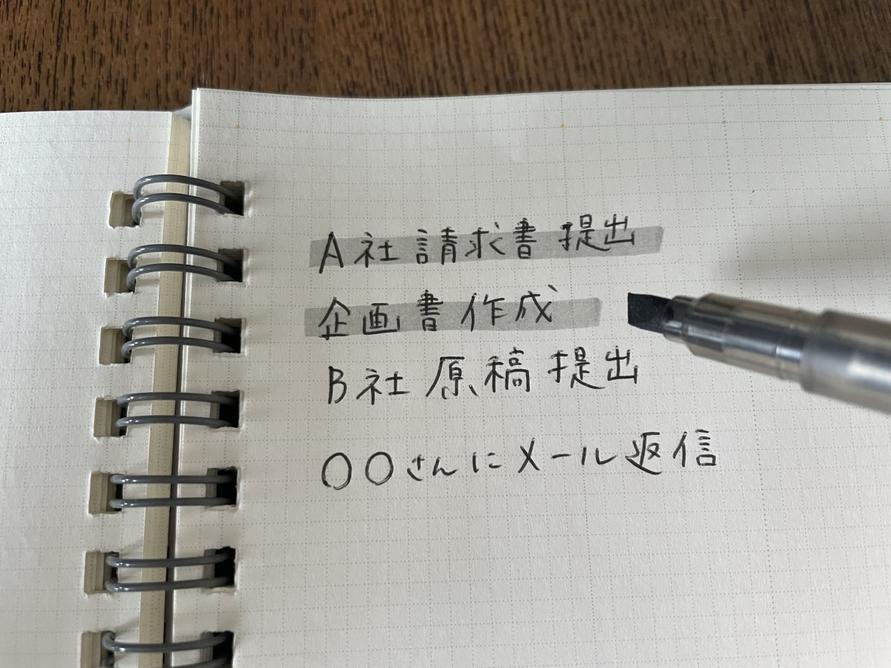 A社 請求書 提出
企画書 作成
B社 原稿 提出
〇〇さんにメール返信